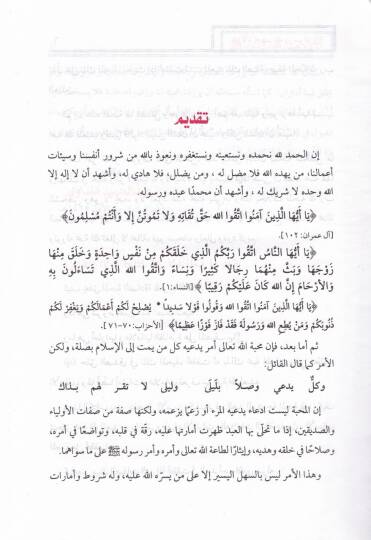 تقديم
إن الحمد لله نحمده ونستعينه ونستغفره ونعوذ بالله من شرور أنفسنا وسيئات
أعمالنا، من يهده الله فلا مضل له ، ومن يضلل، فلا هادي له، وأشهد أن لا إله إلا
الله وحده لا شريك له ، وأشهد أن محمدًا عبده ورسوله.
﴿يَا أَيُّهَا الَّذِينَ آمَنُوا اتَّقُوا اللهَ حَقَّ تُقَاتِهِ وَلَا تَمُوتُنَّ إِلَّا وَأَنْتُمْ مُسْلِمُونَ﴾
[آل عمران: ١٠٢].
﴿يَا أَيُّهَا النَّاسُ اتَّقُوا رَبَّكُمُ الَّذِي خَلَقَكُمْ مِنْ نَفْسٍ وَاحِدَةٍ وَخَلَقَ مِنْهَا
زَوْجَهَا وَبَثَّ مِنْهُمَا رِجَالًا كَثِيرًا وَنِسَاءً وَاتَّقُوا اللهَ الَّذِي تَسَاءَلُونَ بِهِ
وَالْأَرْحَامَ إِنَّ اللهَ كَانَ عَلَيْكُمْ رَقِيبًا﴾ [النساء:١].
﴿يَا أَيُّهَا الَّذِينَ آمَنُوا اتَّقُوا اللهَ وَقُولُوا قَوْلًا سَدِيدًا * يُصْلِحْ لَكُمْ أَعْمَالَكُمْ وَيَغْفِرْ لَكُمْ
ذُنُوبَكُمْ وَمَنْ يُطِعِ اللهَ وَرَسُولَهُ فَقَدْ فَازَ فَوْزًا عَظِيمًا﴾ [الأحزاب:٧٠-٧١].
ثم أما بعد، فإن محبة الله تعالى أمر يدعيه كل من يمت إلى الإسلام بصلة، ولكن
الأمر كما قال القائل:
وكلٌ يدعي وصلاً بليلى وليلى لا تقر لهم بذاك
إن المحبة ليست ادعاء يدعيه المرء أو زعمًا يزعمه، ولكنها صفة من صفات الأولياء
والصديقين، إذا ما تحلّى بها العبد ظهرت أمارتها عليه، رقّة في قلبه، وتواضعًا في أمره،
وصلاحًا في خلقه وهديه، وإيثارًا لطاعة الله تعالى وأمره وأمر رسوله ﷺ على ما سواهما.
وهذا الأمر ليس بالسهل اليسير إلا على من يسرّه الله عليه، وله شروط وأمارات